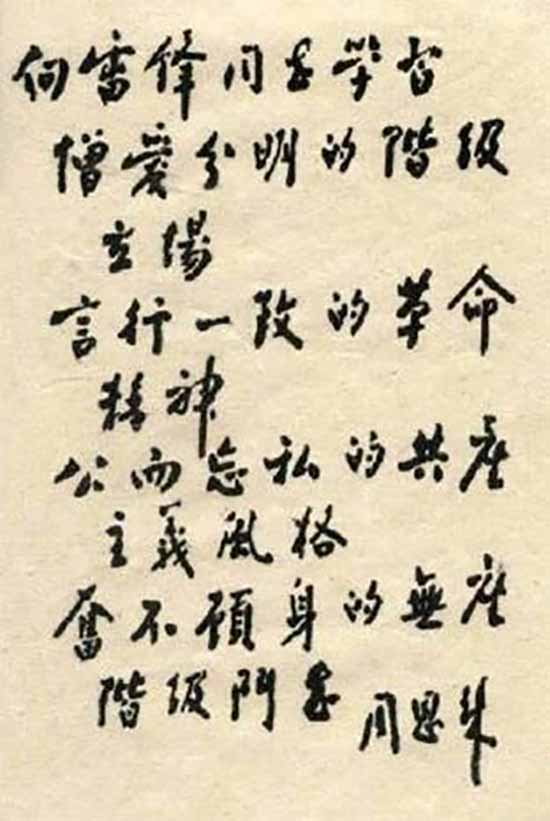 向雷锋同志学習
憎愛分明的階级
立場
言行一致的革命
精神
公而忘私的共产
主義風格
奮不顧身的無产
階级鬥志
周恩来